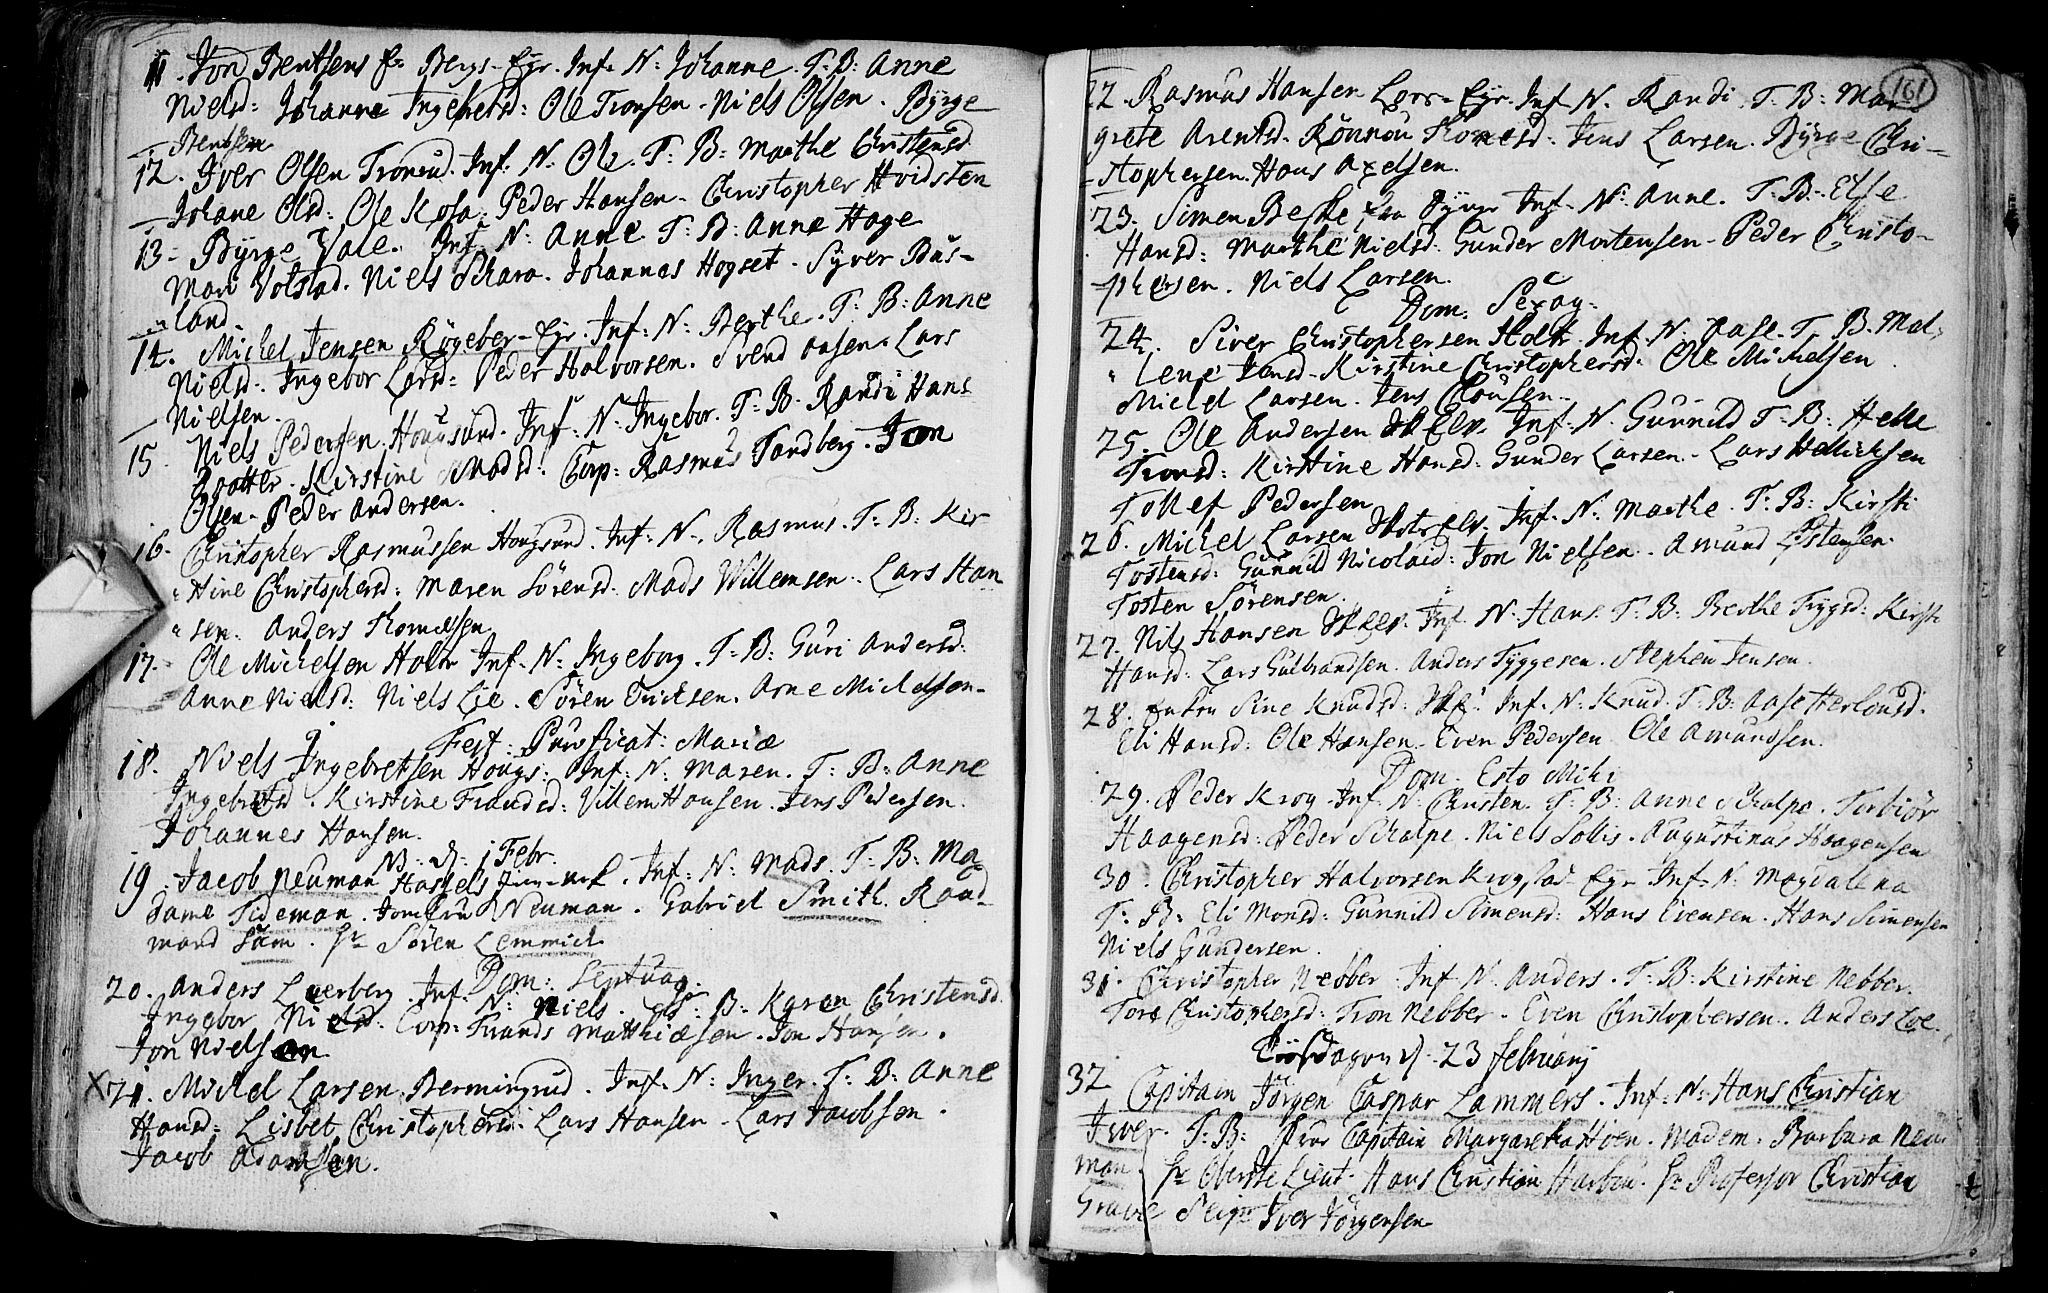 11. Jon Bentsens fr Bergs-Egr. Inf. N: Johanne. T: B: Anne
Nielsd: Johanne Ingebretsd: Ole Tronsen - Niels Olsen. Byrge
Bentsen
12. Iver Olsen Tronrud. Inf: N: Ole. T: B: Marthe Christensd
Johane Olsd: Ole Kosa. Peder Hansen - Christopher Hvidsten
13 - Byrge Vale. Inf: N: Anne. T: B: Anne Hage
Mari Volstad. Niels Schara. Johannes Hogset. Syver Bus-
land.
14. Michel Jensen Røgeber-Egr. Inf: N: Berthe. T: B: Anne
Nielsd: Ingebor Larsd: Peder Halvorsen. Svend Aasen. Lars
Nielsen.
15. Niels Pedersen Hougsund. Inf: N: Ingebor. T: B. Randi Hans
Datter. Kirstine Madsd: Corp: Rasmus Tandberg. Jon
Olsen - Peder Andersen.
16. Christopher Rasmussen Hougsund. Inf: N. Rasmus. T: B: Kir
stine Christophersd: Maren Sörensd. Mads Willemsen. Lars Han
sen. Anders Thomessen
17. Ole Michelsen Holtr Inf. N: Ingeborg. T: B: Guri Andersd:
Anne Nielsd: Niels Lie. Sören Ericksen. Arne Michelsen-
Fest: Purificat: Mariæ
18. Niels Ingebretsen Hougs: Inf: N: Maren. T: B: Anne
Ingebretsd. Kirstine Frandsd: Villem Hansen. Jens Pedersen.
Johannes Hansen.
NB: d: 1 Febr.
19. Jacob Neuman Hassels Jern-verk. Inf: N: Mads. T: B: Ma-
dame Tideman. Jomfru Neuman. Gabriel Smith. Raad-
mand Lam. Hr Sören Lemmich
Dom: Septuag:
20. Anders Loerberg Inf. N: Niels. T: B: Karen Christensd.
Ingebor Nielsd. Corp: Frands Matthiæsen. Jon Hansen.
Jon Nielsen
X 21. Michel Larsen Bermingrud. Inf. N: Inger. T: B: Anne
Hansd: Lisbet Christophersd: Lars Hansen - Lars Jacobsen.
Jacob Adamsen.
161
22. Rasmus Hansen Lors-Egr. Inf. N. Randi. T: B: Mar
grete Arentsd. Rönnou Thomesd. Jens Larsen. Byrge Chri-
stophersen. Hans Axelsen.
23. Simen Beske fra Byrge Inf. N: Anne. T: B: Else
Hansd: Marthe Nielsd: Gunder Mortensen - Peder Christo-
phersen. Niels Larsen.
Dom. Sexag:
24. Siver Christophersen Holtr. Inf. N. Aase. T: B. Mal,
lene Jensd. Kirstine Christophersd: Ole Michelsen.
Michel Larsen. Jens Clousen.
25. Ole Andersen Inf. N. Gunnild T: B: Helle
Tronsd: Kirstine Hansd: Gunder Larsen. Lars Hellichsen
Tollef Pedersen
26. Michel Larsen Inf. N: Marthe. T: B: Kirsti
Tostensd: Gunnild Nicolaid: Jon Nielsen. Amund
Tosten Sörensen.
27. Nils Hansen Inf. N: Hans. T: B: Berthe Trygsd: Kirsti
Hansd: Lars Gulbrandsen. Anders Tyggesen. Stephen Jensen.
28. Enken Sine Knudsd: Inf. N: Knud. T: B: Aase Herlousd.
Eli Hansd: Ole Hansen. Even Pedersen. Ole Amundsen.
Dom. Esto Mihi
29. Peder Krog. Inf. N: Christen. T: B: Anne Schalpe. Torbiör
Haagensd: Peder Schalpe. Niels Sollis. Augustinus Haagensen
30. Christopher Halvorsen Krogstad Egr Inf. N: Magdalena
T: B: Eli Monsd: Gunnild Simensd: Hans Evensen. Hans Simensen
Niels Gundersen.
31. Christopher Nebber. Inf. N. Anders. T: B: Kirstine Nebber.
Tore Christophersd: Tron Nebber. Even Christophersen. Anders Loe.
Tiisdagen d: 23 februarj
32 Capitain Jörgen Caspar Lammers. Inf: N: Hans Christian
Iver. T: B: Frue Capitain Margaretha Hoen. Madem. Barbara Neu
man Hr Oberste Lieut. Hans Christian Harbou. Hr Professor Christian
Grave Seigr Iver Jörgensen